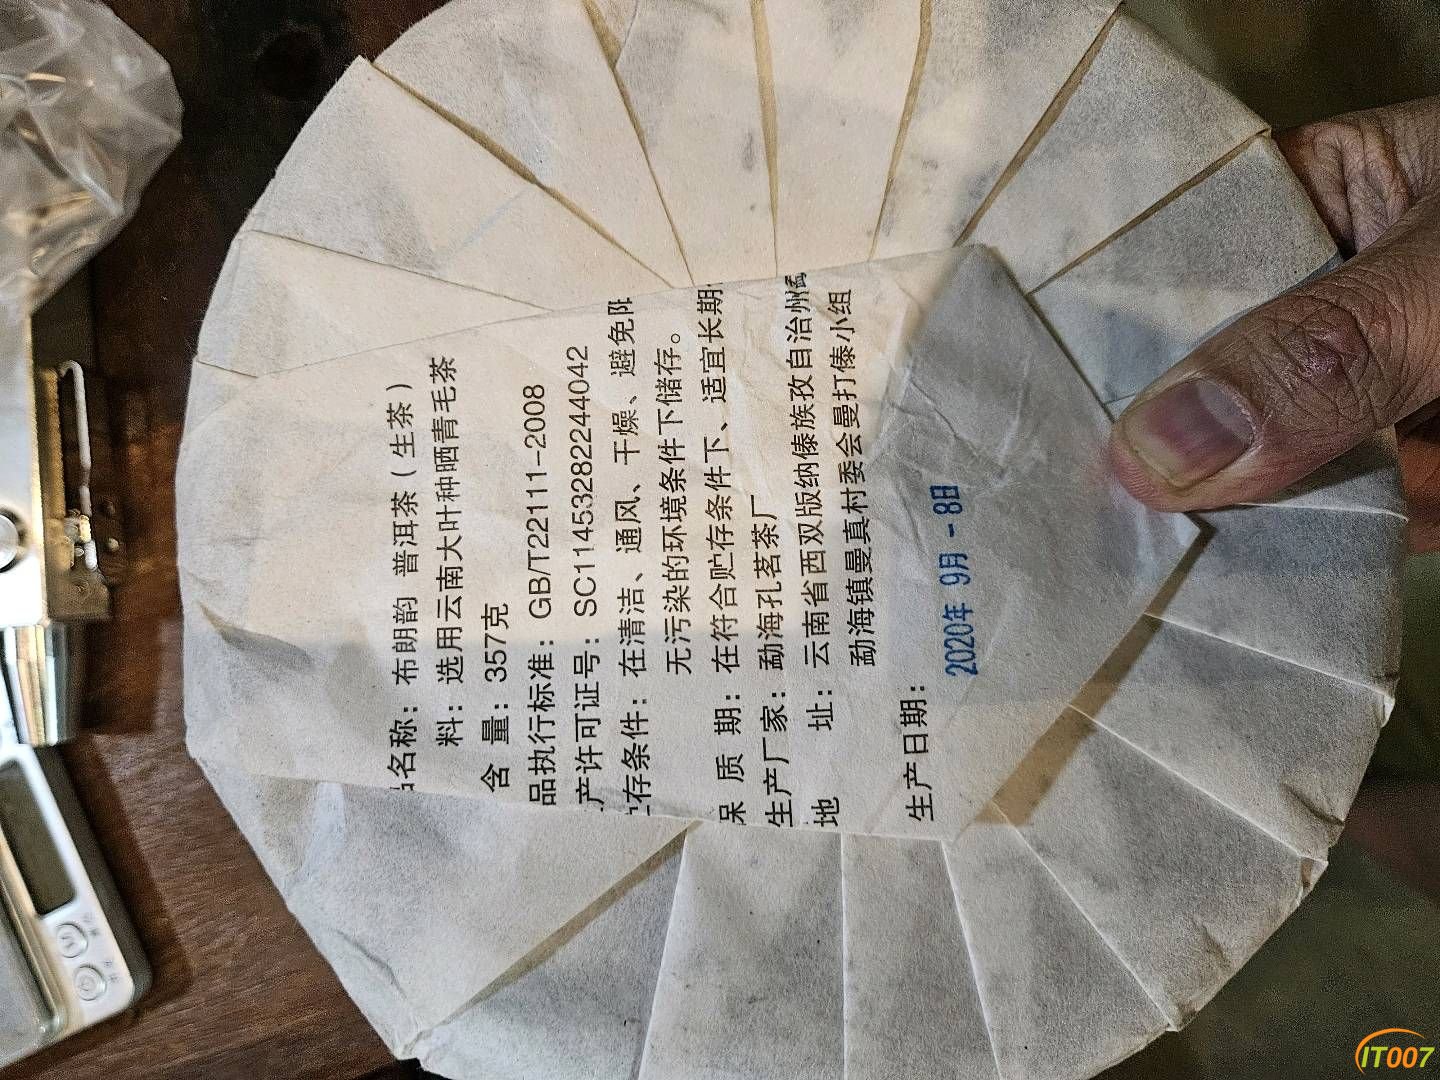 名称：布朗韵 普洱茶（生茶）
料：选用云南大叶种晒青毛茶
含 量：357克
品执行标准：GB/T22111-2008
产许可证号：SC11453282244042
存条件：在清洁、通风、干燥、避免阳
无污染的环境条件下储存。
保 质 期：在符合贮存条件下、适宜长期
生产厂家：勐海孔茗茶厂
地 址：云南省西双版纳傣族孜自治州勐
勐海镇曼真村委会曼打傣小组
生产日期：
2020年 9月 - 8日
IT007